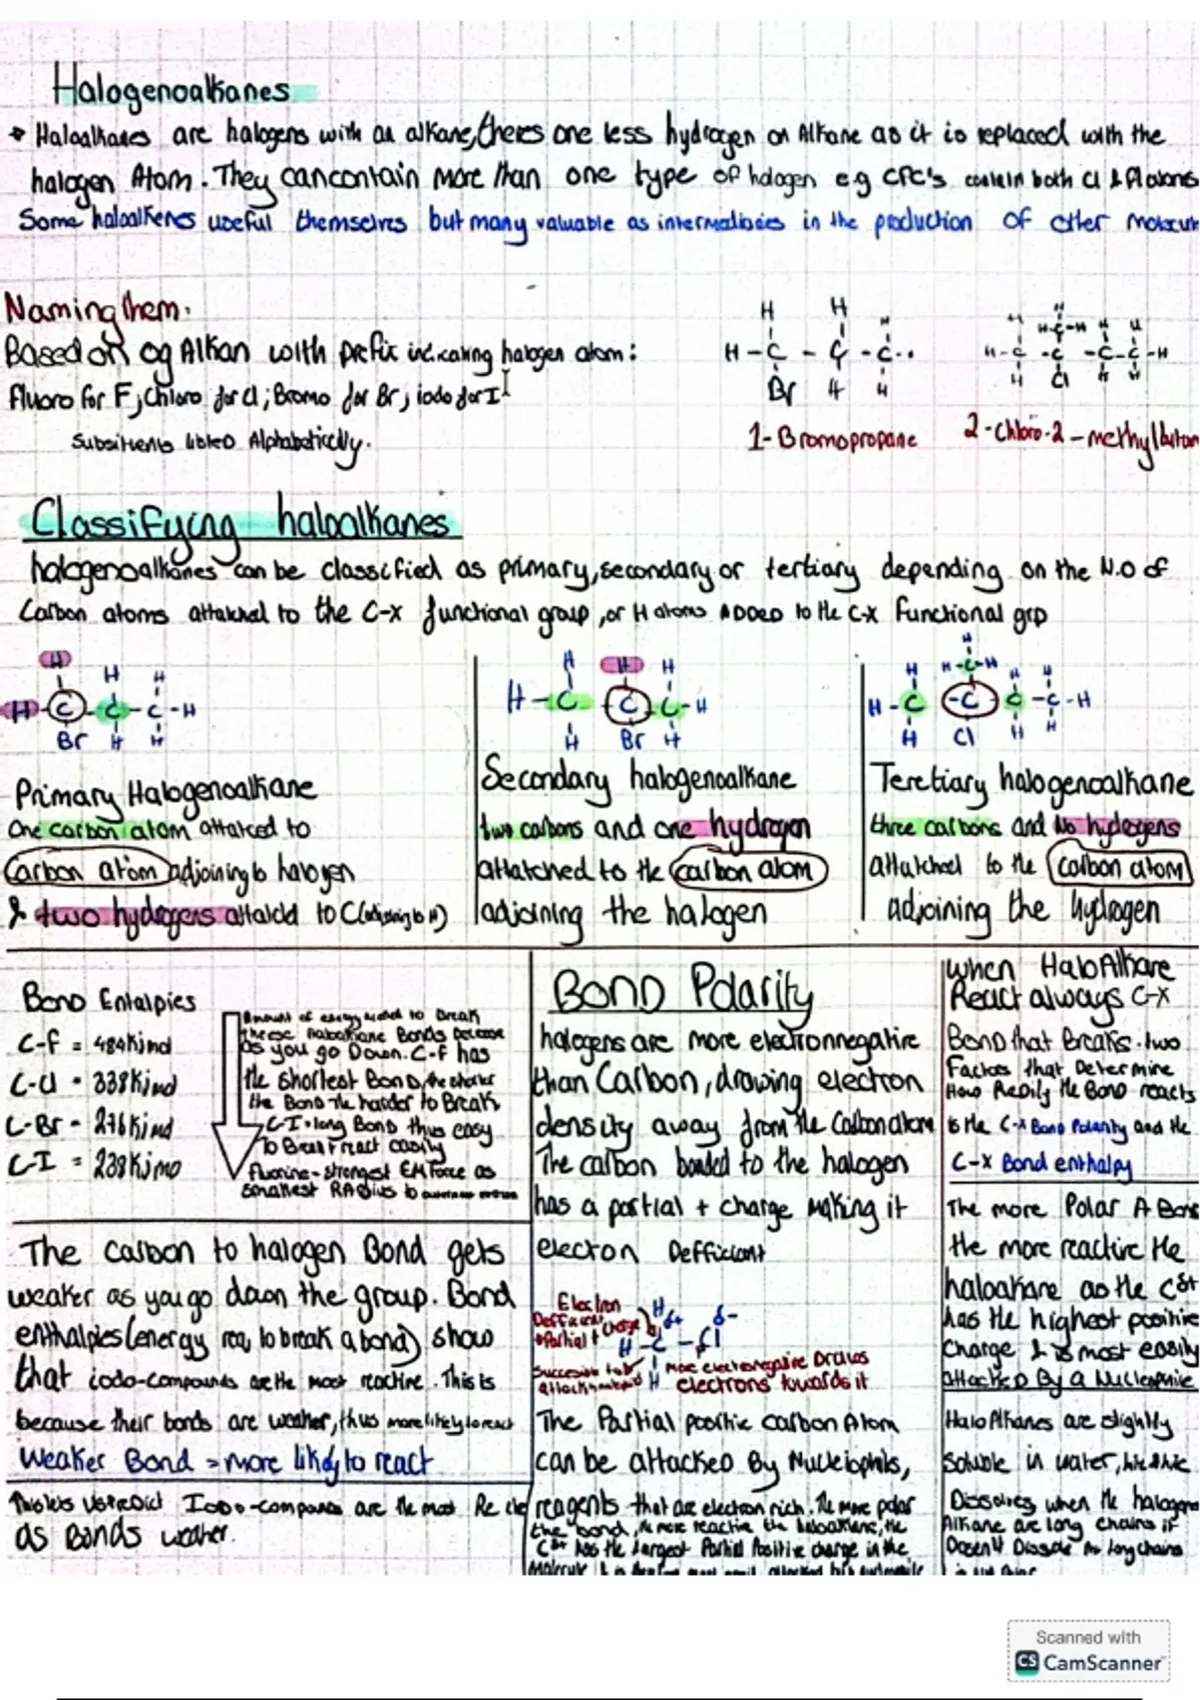 Halogenoalkanes
Haloalkanes are halogens with an alkane, theres one less hydrogen on Alkane as it is replaced with the
halogen Atom. They can contain more than one type of halogen e.g CFC's contain both Cl & F atoms
Some haloalkenes useful themselves but many valuable as intermediaries in the production of other
Naming them:
Based on og Alkan with prefix indicating halogen atom:
fluoro for F; Chloro for Cl; Bromo for Br; iodo for I
listed Alphabetically.
H H H
H - C - C - C
Br H H
1-Bromopropane
H
H-C-H H H
H-C-C-C-C-H
H Cl H H
2-chloro-2-methylbutan
Classifying haloalkanes
halogenoalkanes can be classified as primary, secondary or tertiary depending on the N.O of
Carbon atoms attatched to the C-X functional group, or H atoms ADDED to the C-X functional grp
H H H
H-C-C-C-H
Br H H
Primary Halogenoalkane
One carbon atom attatched to
carbon atom adjoining to halogen
& two hydrogens attatched to C
H H H
H-C-C-C-H
H Br H
Secondary halogenoalkane
two carbons and one hydrogen
attatched to the carbon atom
adjoining the halogen
H
H H-C-H H H
H-C-C-C-C-H
H Cl H H
Teretiary halogenoalkane
three carbons and No hydrogens
attatched to the carbon atom
adjoining the hydrogen
Bond Entalpies
C-f = 484Kjmol
C-Cl = 338Kjmol
C-Br = 276Kjmol
C-I = 238Kjmo
Amount of energy needed to Break
these haloalkane Bonds Decrease
as you go Down. C-f has
the shortest Bond, the shorter
the Bond the harder to Break
C-I = long Bond thus easy
to Break + react easily
fluorine - strongest EM force as
smallest Radius
The carbon to halogen Bond gets
weaker as you go down the group. Bond
enthalpies (energy req to break a bond) show
that iodo-compounds are the most reactive. This is
because their bonds are weaker, thus more likely to react
Weaker Bond = more likely to react
Iodo-compounds are the most
as Bonds weaker.
Bond Polarity
halogens are more electronnegative
than Carbon, drawing electron
density away from the Carbon atom
The carbon bonded to the halogen
has a partial + charge making it
electon Defficiant
Electron
Partial + charge
H δ+ δ-
H-C-Cl
H
more electronegative Draws
electrons towards it
The Partial positive carbon Atom
can be attacked By Nucleiophils,
reagents that are electron rich. The more polar
the bond, the more reactive the haloalkane, the
Cδ+ has the largest Partial Positive charge in the
when HaloAlkane
React always C-X
Bond that Breaks. two
Factors that Determine
How Redily the Bond reacts
is the C-X Bond Polarity and the
C-X Bond enthalpy
The more Polar A Bond
the more reactive the
haloakane as the Cδ+
has the highest positive
Charge & is most easily
attacked By a Nucleophile
HaloAlkanes are slightly
Soluble in water,
Dissolves when the halogeno
Alkane are long chains it
Doesn't Dissolve long chains
Scanned with
CS CamScanner